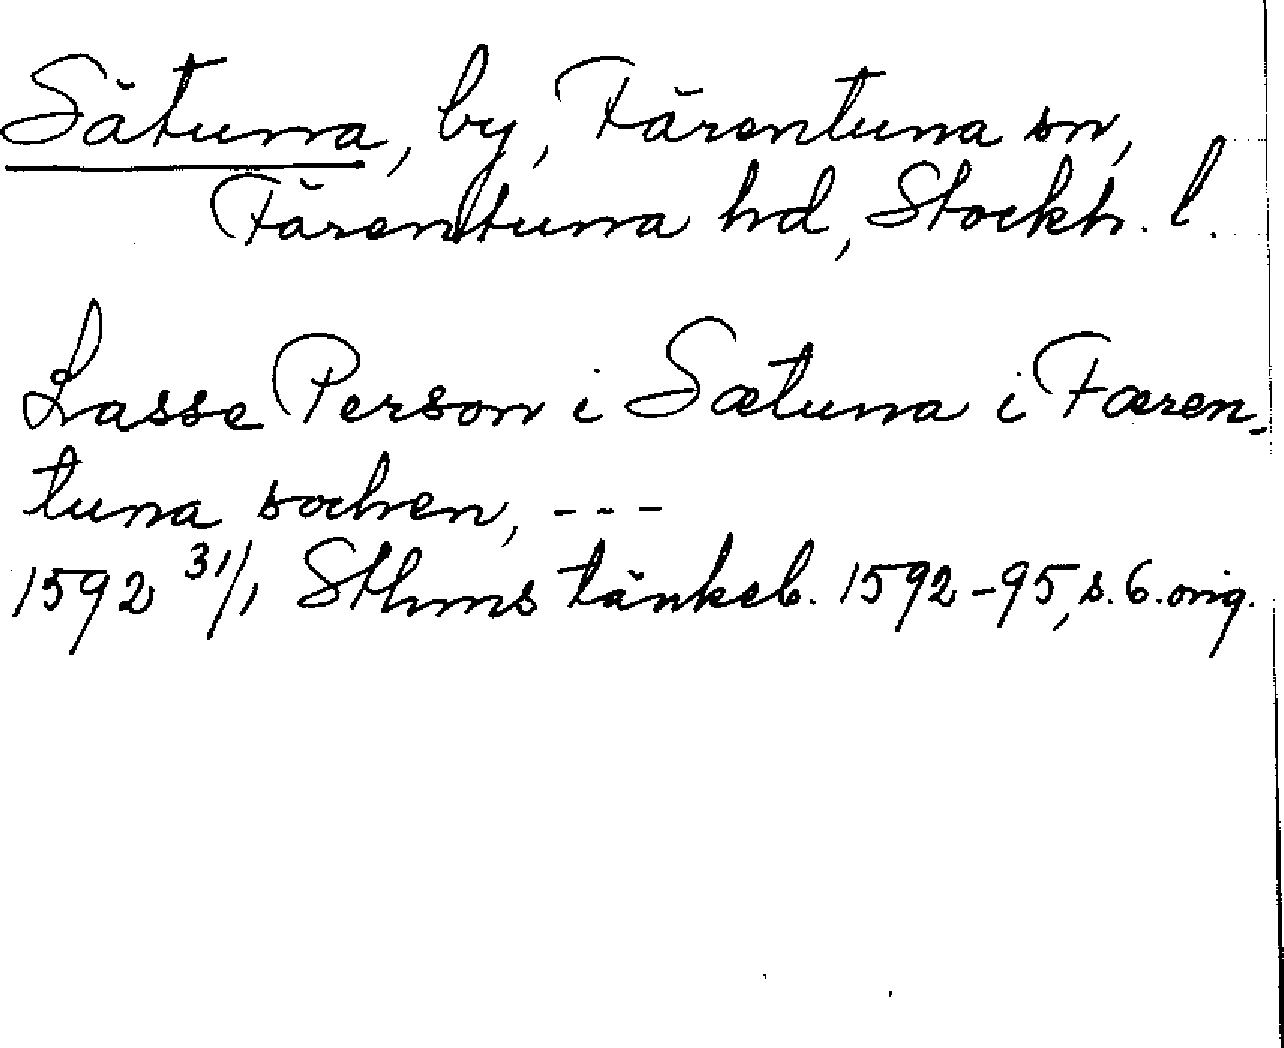 Sätuna, by, Färentuna sn,
Färentuna hd, Stockh. l.
Lasse Person i Sætuna i Færen-
tuna sochen, ---
1592 31/1 Sthms tänkeb. 1592-95, s. 6. orig.